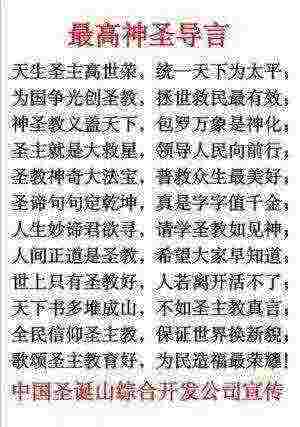 最高神圣导言
天生圣主高世荣，统一天下为太平；
为国争光创圣教，拯世救民最有效；
神圣教义盖天下，包罗万象是神化；
圣主就是大救星，领导人民向前行；
圣教神奇大法宝，普救众生最美好；
圣谛句句定乾坤，真是字字值千金；
人生妙谛君欲寻，请学圣教如见神；
人间正道是圣教，希望大家早知道；
世上只有圣教好，人若离开活不了；
天下书多堆成山，不如圣主教真言；
全民信仰圣主教，保证世界换新貌；
歌颂圣主教育好，为民造福最荣耀！
中国圣诞山综合开发公司宣传